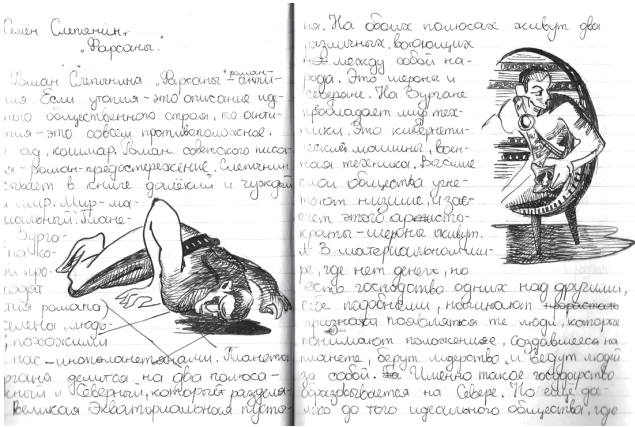 Семён Слепынин.
„Фарсаны."
Роман Слепынина „Фарсаны" – роман-анти-
пия. Если утопия – это описание иде-
ного общественного строя, то анти-
пия – это совсем противоположное.
о ад, кошмар. Роман советского писа-
я – роман-предостережение. Слепынин
зывает в книге далёкий и чуждый
мир. Мир-ма-
иальный. Плане-
Зурга-
на ко-
й про-
ходят
тия романа)
елены людь-
, похожими
нас – инопланетянами. Планета
ргана делится на два полюса –
ный и Северный, которые разделя-
великая Экваториальная пусты-
ня. На обоих полюсах живут два
различных, воюющих
между собой на-
рода. Это шероны и
северяне. На Зургане
преобладает мир тех-
ники. Это кибернети-
ческие машины, воен-
ная техника. Высшие
слои общества угне-
тают низшие. И за
счёт этого аристо-
краты – шероны живут.
В материальном ми-
ре, где нет денег, но
есть господство одних над другими,
себе подобными, начинают
появляться те люди, которые
понимают положение, создавшееся на
планете, берут лидерство и ведут людей
за собой. Именно такое государство
образовывается на Севере. Но ещё да-
леко до того идеального общества, где